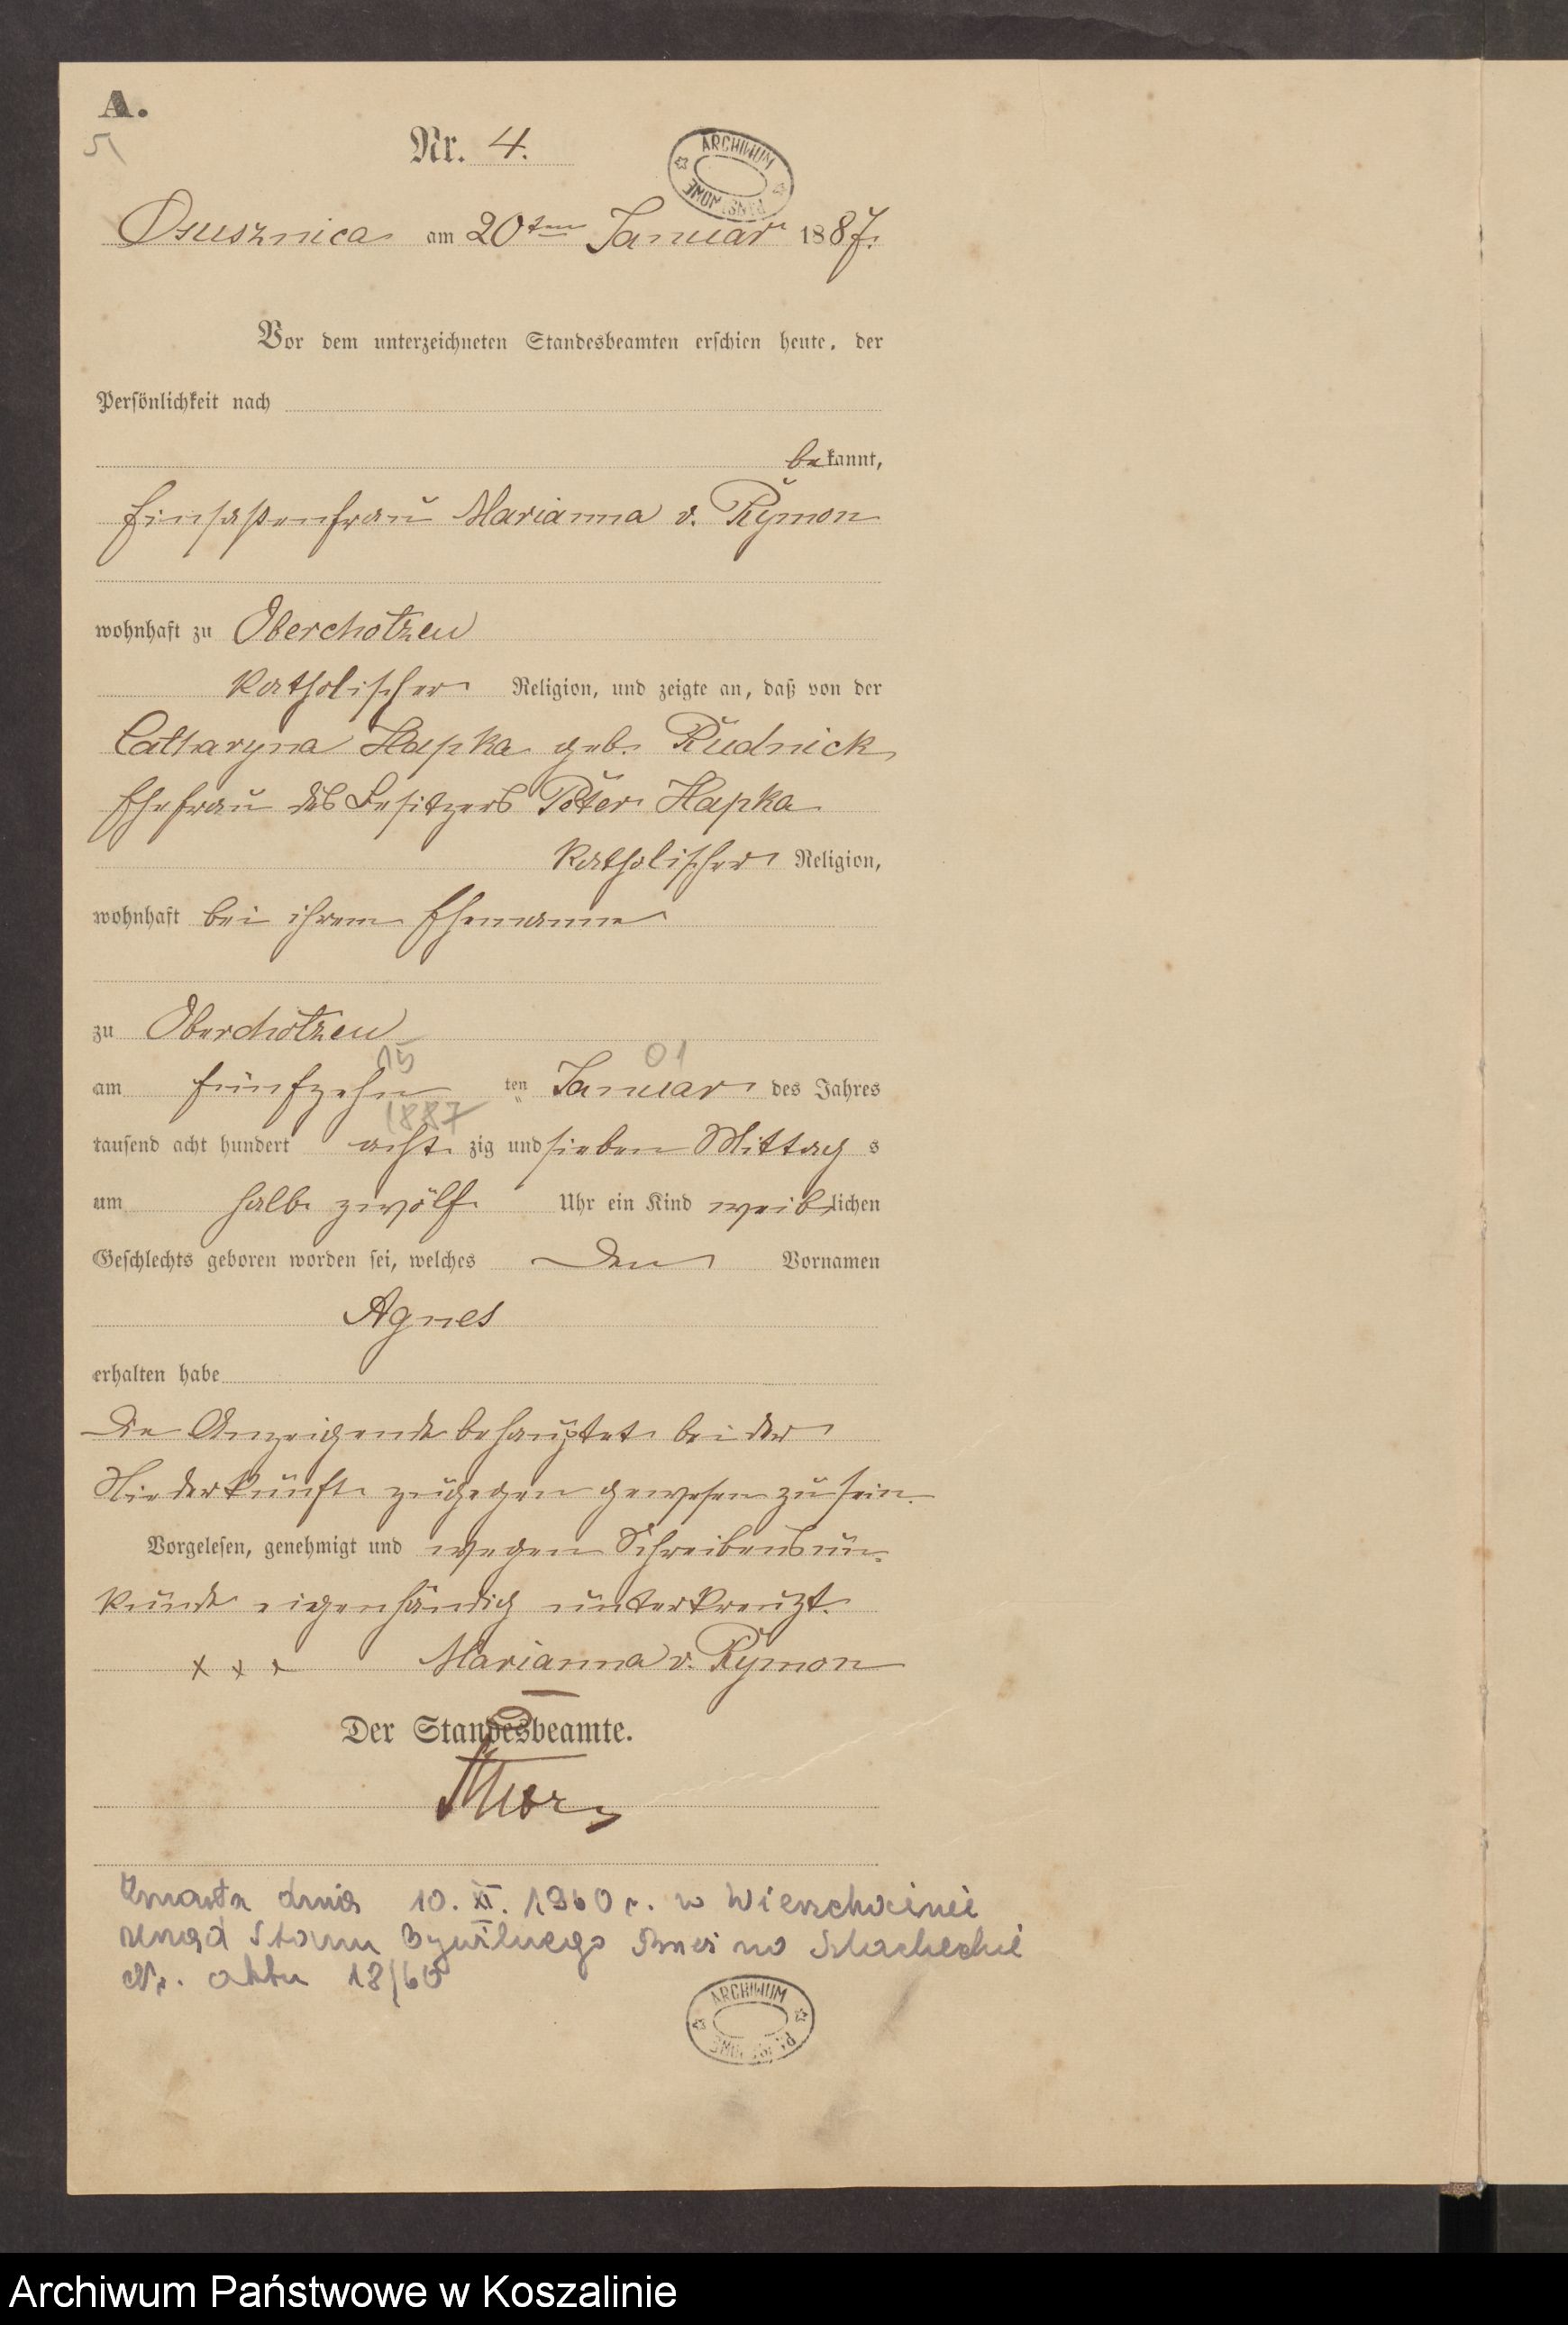 A.
Nr. 4.
ARCHIWUM PAŃSTWOWE
Osusznica am 20ten Januar 1887.
Vor dem unterzeichneten Standesbeamten erschien heute, der
Persönlichkeit nach
bekannt,
Einsaßenfrau Marianna v. Rymon
wohnhaft zu Oberchotzen
katholischer Religion, und zeigte an, daß von der
Catharyna Hapka geb. Rudnick
Ehefrau des Besitzers Peter Hapka
katholischer Religion,
wohnhaft bei ihrem Ehemanne
zu Oberchotzen
15 01
am fünfzehn ten Januar des Jahres
1887
tausend acht hundert acht zig und sieben Mittag s
um halb zwölf Uhr ein Kind weiblichen
Geschlechts geboren worden sei, welches den Vornamen
Agnes
erhalten habe
Die Anzeigende behauptet bei der
Niederkunft zugegen gewesen zu sein.
Vorgelesen, genehmigt und wegen Schreibensun-
kunde eigenhändig unterkreuzt.
x x x Marianna v. Rymon
Der Standesbeamte.
Zmarła dnia 10. XI. 1960 r. w Wierzchocinie
urząd Stanu Cywilnego
Nr. aktu 18/60
ARCHIWUM PAŃSTWOWE
Archiwum Państwowe w Koszalinie